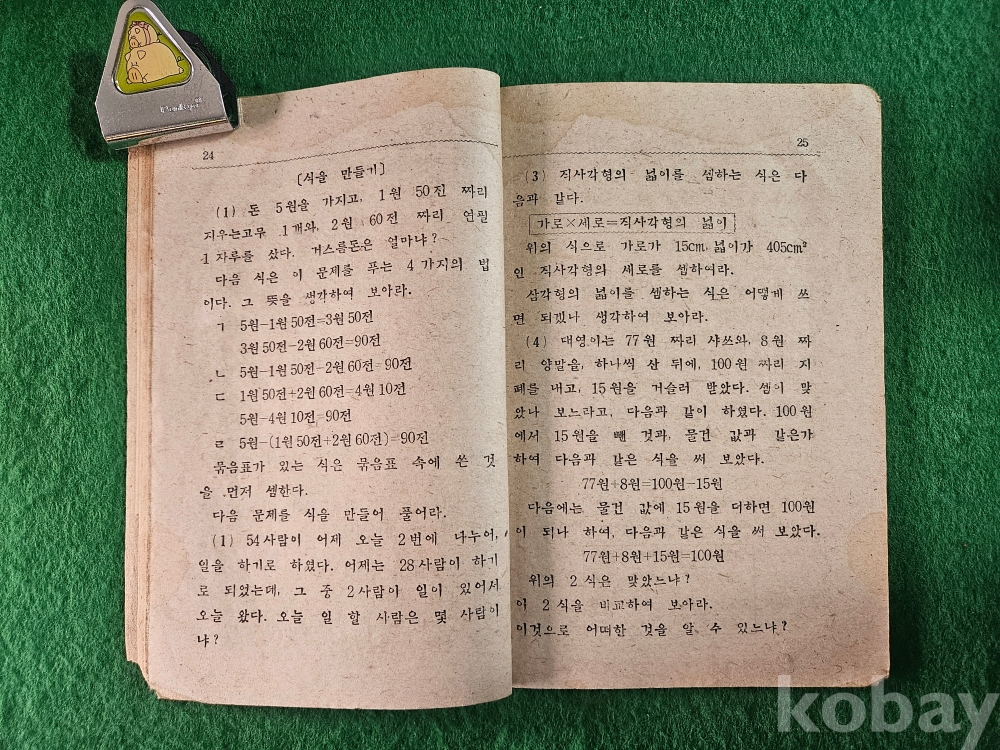 24
[식을 만들기]
(1) 돈 5원을 가지고, 1원 50전 짜리
지우는고무 1개와, 2원 60전 짜리 연필
1자루를 샀다. 거스름돈은 얼마냐?
다음 식은 이 문제를 푸는 4가지의 법
이다. 그 뜻을 생각하여 보아라.
ㄱ 5원-1원50전=3원50전
3원50전-2원60전=90전
ㄴ 5원-1원50전-2원60전=90전
ㄷ 1원50전+2원60전=4원10전
5원-4원10전=90전
ㄹ 5원-(1원50전+2원60전)=90전
묶음표가 있는 식은 묶음표 속에 쓴 것
을 먼저 셈한다.
다음 문제를 식을 만들어 풀어라.
(1) 54사람이 어제 오늘 2번에 나누어,
일을 하기로 하였다. 어제는 28사람이 하기
로 되었는데, 그 중 2사람이 일이 있어서
오늘 왔다. 오늘 일 할 사람은 몇 사람이
냐?
25
(3) 직사각형의 넓이를 셈하는 식은 다
음과 같다.
가로×세로=직사각형의 넓이
위의 식으로 가로가 15cm, 넓이가 405cm²
인 직사각형의 세로를 셈하여라.
삼각형의 넓이를 셈하는 식은 어떻게 쓰
면 되겠나 생각하여 보아라.
(4) 대영이는 77원 짜리 샤쓰와, 8원 짜
리 양말을, 하나씩 산 뒤에, 100원 짜리 지
폐를 내고, 15원을 거슬러 받았다. 셈이 맞
았나 보느라고, 다음과 같이 하였다. 100원
에서 15원을 뺀 것과, 물건 값과 같은가
하여 다음과 같은 식을 써 보았다.
77원+8원=100원-15원
다음에는 물건 값에 15원을 더하면 100원
이 되나 하여, 다음과 같은 식을 써 보았다.
77원+8원+15원=100원
위의 2식은 맞았느냐?
이 2식을 비교하여 보아라.
이것으로 어떠한 것을 알 수 있느냐?
kobay